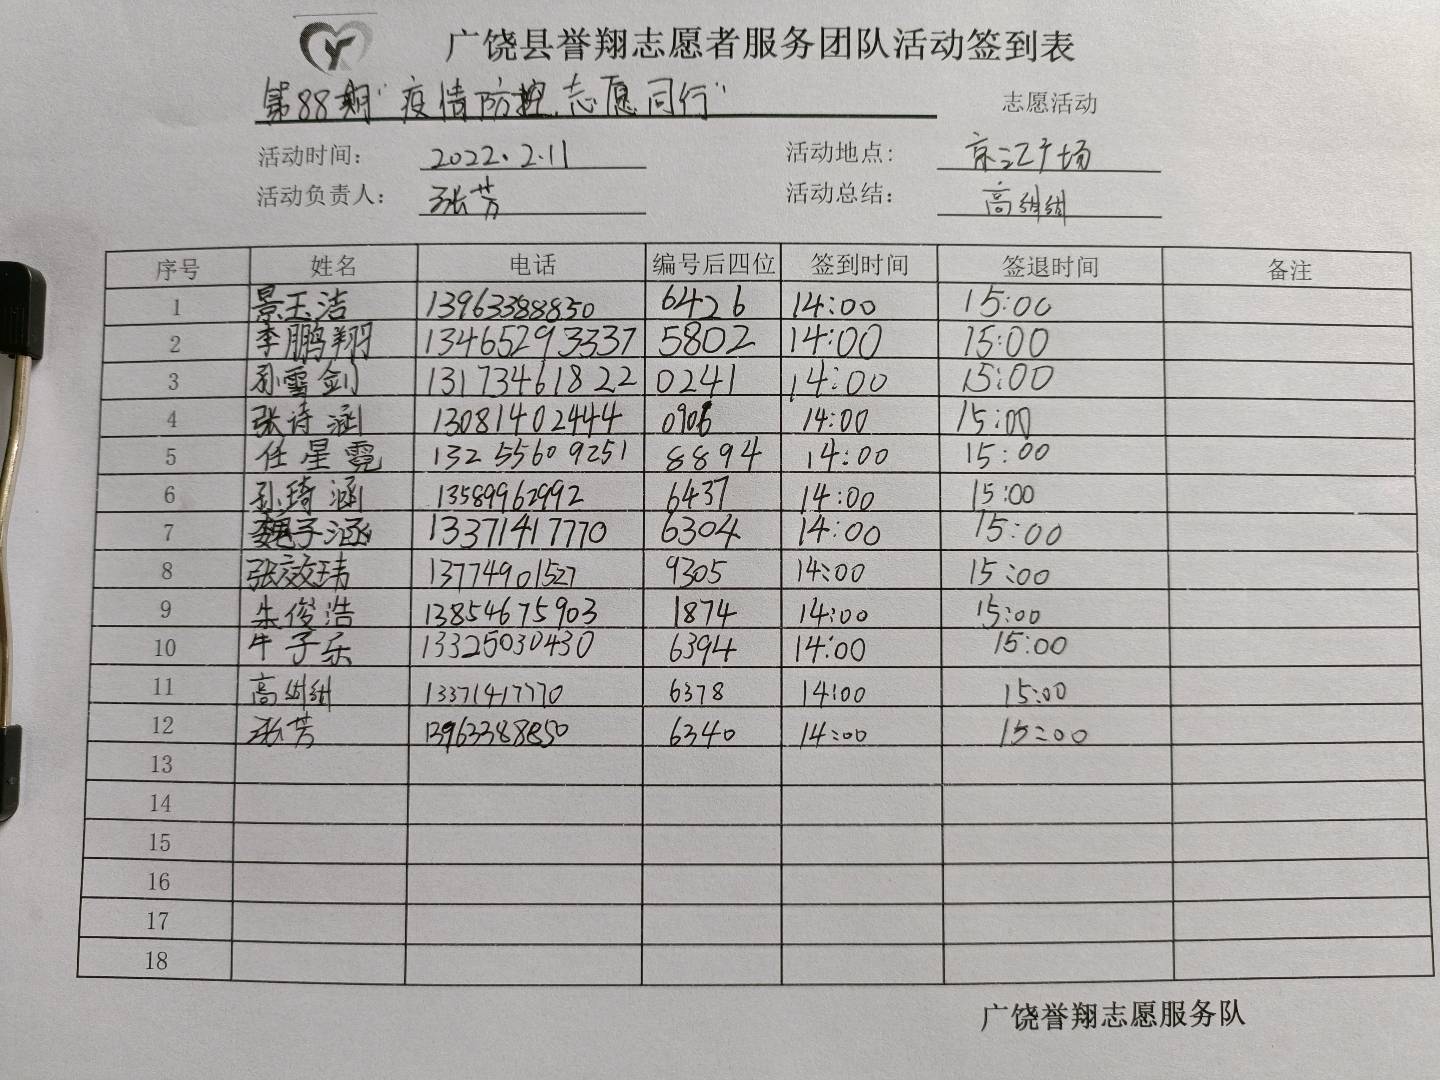 广饶县誉翔志愿者服务团队活动签到表
第88期"疫情防控,志愿同行" 志愿活动
活动时间: 2022.2.11 活动地点: 京江广场
活动负责人: 张芳 活动总结: 高甜甜
序号 姓名 电话 编号后四位 签到时间 签退时间 备注
1 景玉洁 13963388850 6426 14:00 15:00
2 李鹏翔 13465293337 5802 14:00 15:00
3 孙雪剑 13173461822 0241 14:00 15:00
4 张诗涵 13081402444 0906 14:00 15:00
5 任星霓 13255609251 8894 14:00 15:00
6 孙琦涵 13589962992 6437 14:00 15:00
7 魏子涵 13371417770 6304 14:00 15:00
8 张效玮 13774901527 9305 14:00 15:00
9 朱俊浩 13854675903 1874 14:00 15:00
10 牛子乐 13325030430 6394 14:00 15:00
11 高甜甜 13371417770 6378 14:00 15:00
12 张芳 13963388850 6340 14:00 15:00
13
14
15
16
17
18
广饶誉翔志愿服务队